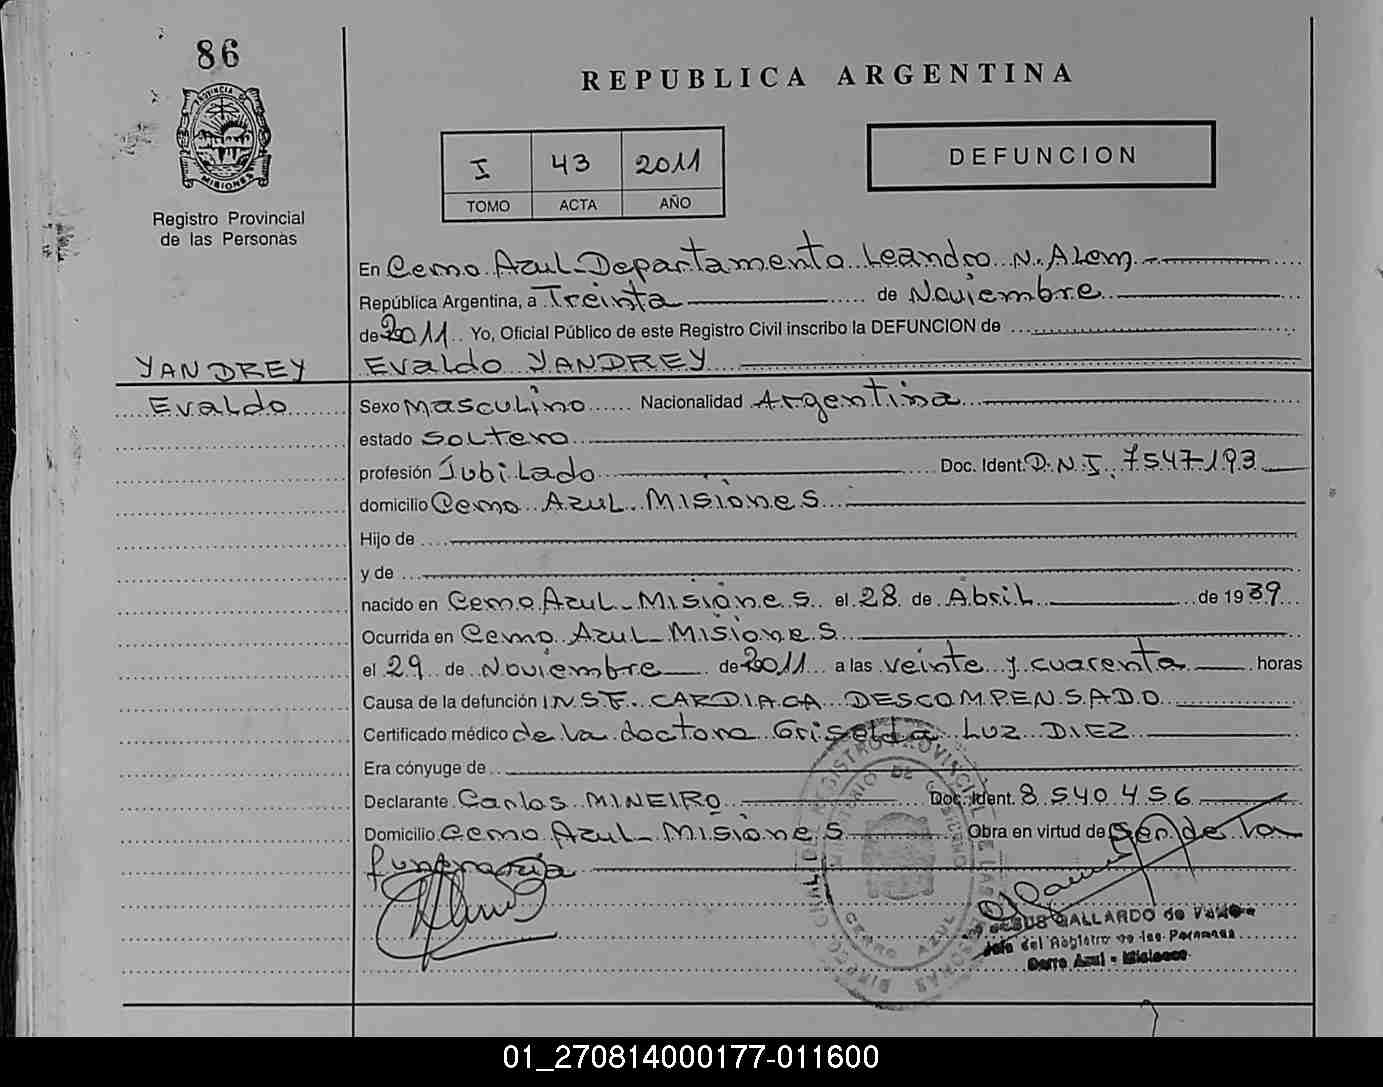 86
PROVINCIA DE
MISIONES
Registro Provincial
de las Personas
REPUBLICA ARGENTINA
I 43 2011
TOMO ACTA AÑO
DEFUNCION
En Cerro Azul-Departamento Leandro N. Alem
República Argentina, a Treinta de Noviembre
de 2011 Yo, Oficial Público de este Registro Civil inscribo la DEFUNCION de
YANDREY Evaldo YANDREY
Evaldo Sexo Masculino Nacionalidad Argentina
estado Soltero
profesión Jubilado Doc. Ident. D.N.I. 7547193
domicilio Cerro Azul Misiones
Hijo de
y de
nacido en Cerro Azul-Misiones el 28 de Abril de 1939
Ocurrida en Cerro Azul-Misiones
el 29 de Noviembre de 2011 a las veinte y cuarenta horas
Causa de la defunción INSF. CARDIACA DESCOMPENSADO
Certificado médico de la doctora Griselda LUZ DIEZ
Era cónyuge de
Declarante Carlos MINEIRO Doc. Ident. 8540456
Domicilio Cerro Azul-Misiones Obra en virtud de Ser de la
funeraria
CERRO AZUL
JESUS GALLARDO de
Jefe del Registro de las Personas
Cerro Azul - Misiones
01_270814000177-011600